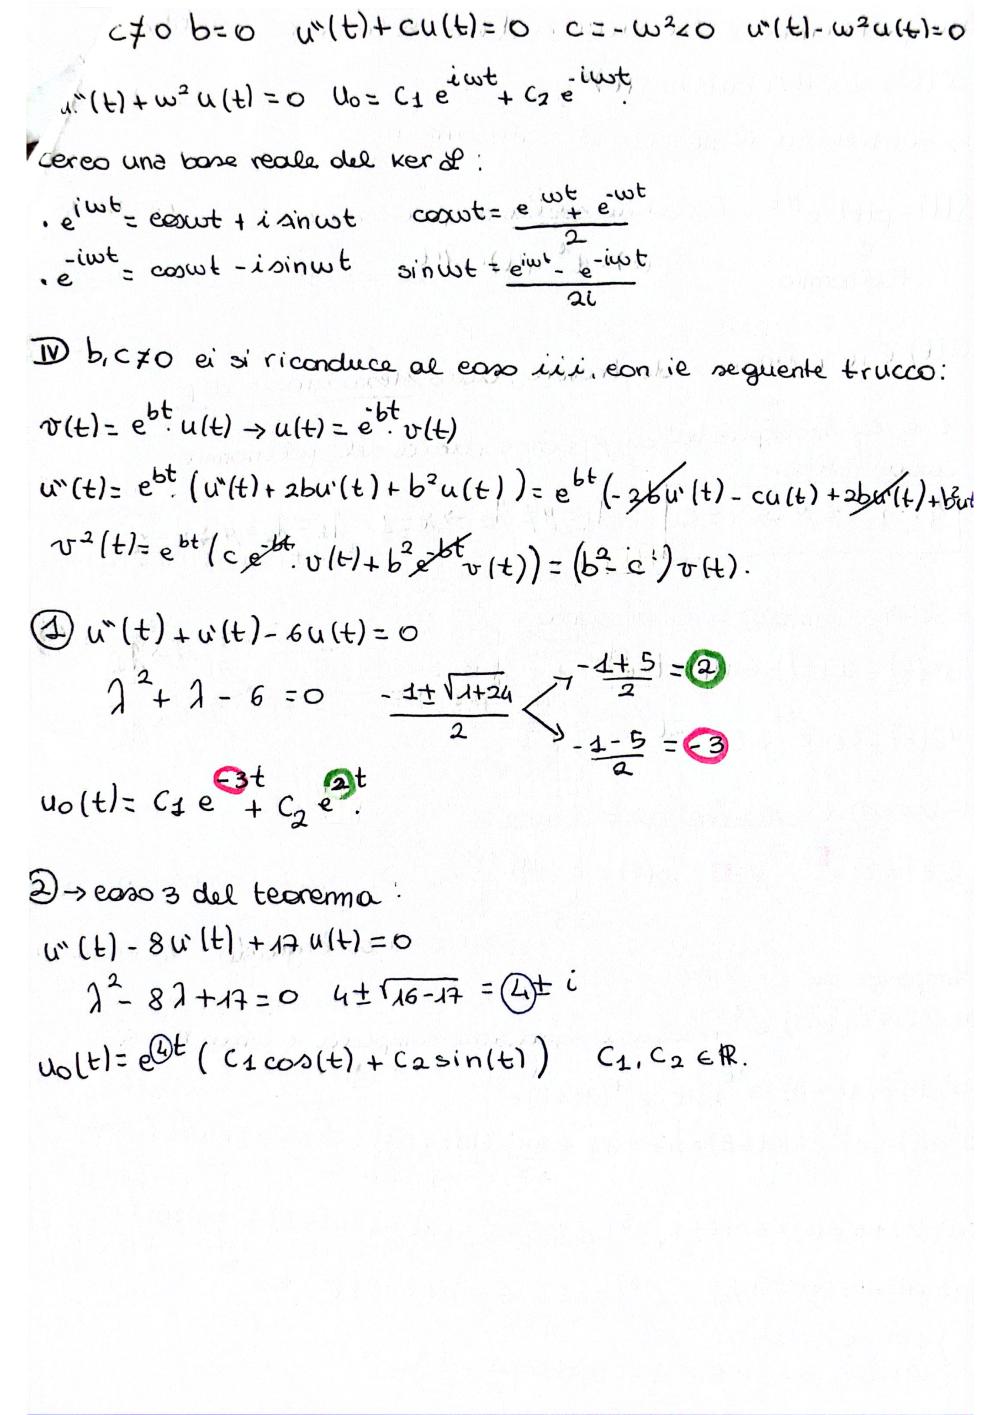 c≠0 b=0 u''(t)+cu(t)=0 c=-ω²<0 u''(t)-ω²u(t)=0
u''(t)+ω²u(t)=0 u₀= C₁ e^{iωt} + C₂ e^{-iωt}.
cerco una base reale del ker ℒ:
· e^{iωt} = cosωt + i sinωt cosωt = (e^{ωt} + e^{-ωt})/2
· e^{-iωt} = cosωt - i sinωt sinωt = (e^{iωt} - e^{-iωt})/2i
IV b,c≠0 ci si riconduce al caso iii. con il seguente trucco:
v(t)= e^{bt}·u(t) → u(t)= e^{-bt}·v(t)
u''(t)= e^{bt}·(u''(t)+2bu'(t)+b²u(t))= e^{bt}(-2bu'(t)-cu(t)+2bu'(t)+b²ut
v²(t)= e^{bt}(c e^{-bt}·v(t)+b² e^{-bt} v(t))=(b²-c')v(t).
① u''(t)+u'(t)-6u(t)=0
λ²+λ-6=0 (-1±√(1+24))/2 (-1+5)/2 = 2
(-1-5)/2 = -3
u₀(t)= C₁ e^{-3t} + C₂ e^{2t}.
② → caso 3 del teorema:
u''(t)-8u'(t)+17u(t)=0
λ²-8λ+17=0 4±√(16-17) = 4± i
u₀(t)= e^{4t} (C₁cos(t)+C₂sin(t)) C₁,C₂∈ℝ.